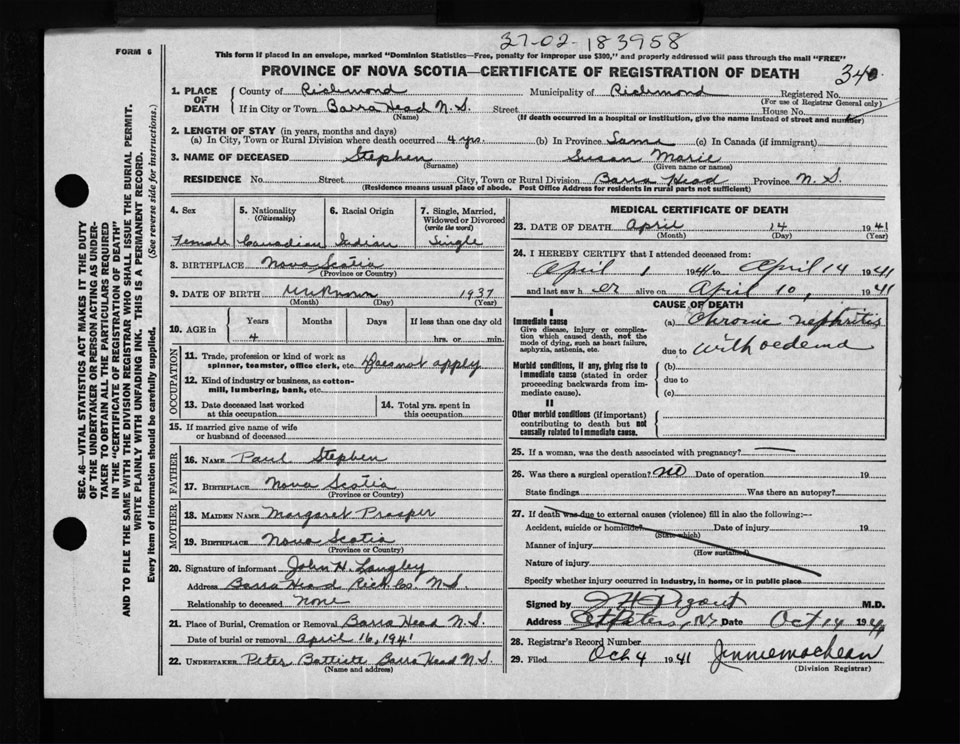 FORM 6
37-02-183958
This form if placed in an envelope, marked "Dominion Statistics—Free, penalty for improper use $300," and properly addressed will pass through the mail "FREE"
PROVINCE OF NOVA SCOTIA—CERTIFICATE OF REGISTRATION OF DEATH
340
1. PLACE OF DEATH
County of Richmond Municipality of Richmond Registered No.
(For use of Registrar General only)
If in City or Town Barra Head N.S. Street House No.
(Name) (If death occurred in a hospital or institution, give the name instead of street and number)
2. LENGTH OF STAY (in years, months and days)
(a) In City, Town or Rural Division where death occurred 4 yrs. (b) In Province Same (c) In Canada (if immigrant)
3. NAME OF DECEASED Stephen Susan Marie
(Surname) (Given name or names)
RESIDENCE No. Street City, Town or Rural Division Barra Head Province N.S.
(Residence means usual place of abode. Post Office Address for residents in rural parts not sufficient)
SEC. 46—VITAL STATISTICS ACT MAKES IT THE DUTY
OF THE UNDERTAKER OR PERSON ACTING AS UNDER-
TAKER TO OBTAIN ALL THE PARTICULARS REQUIRED
IN THE "CERTIFICATE OF REGISTRATION OF DEATH"
AND TO FILE THE SAME WITH THE DIVISION REGISTRAR WHO SHALL ISSUE THE BURIAL PERMIT.
WRITE PLAINLY WITH UNFADING INK. THIS IS A PERMANENT RECORD.
Every item of information should be carefully supplied. (See reverse side for instructions.)
4. Sex 5. Nationality (Citizenship) 6. Racial Origin 7. Single, Married, Widowed or Divorced (write the word)
Female Canadian Indian Single
8. BIRTHPLACE Nova Scotia
(Province or Country)
9. DATE OF BIRTH Unknown 1937
(Month) (Day) (Year)
10. AGE in Years Months Days If less than one day old
4 hrs. or min.
OCCUPATION
11. Trade, profession or kind of work as
spinner, teamster, office clerk, etc. Does not apply
12. Kind of industry or business, as cotton-
mill, lumbering, bank, etc.
13. Date deceased last worked at this occupation
14. Total yrs. spent in this occupation
15. If married give name of wife
or husband of deceased
FATHER
16. NAME Paul Stephen
17. BIRTHPLACE Nova Scotia
(Province or Country)
MOTHER
18. MAIDEN NAME Margaret Prosper
19. BIRTHPLACE Nova Scotia
(Province or Country)
20. Signature of informant John H. Langley
Address Barra Head Rich. Co. N.S.
Relationship to deceased None
21. Place of Burial, Cremation or Removal Barra Head N.S.
Date of burial or removal April 16, 1941
22. UNDERTAKER Peter Battiste Barra Head N.S.
(Name and address)
MEDICAL CERTIFICATE OF DEATH
23. DATE OF DEATH April 14 1941
(Month) (Day) (Year)
24. I HEREBY CERTIFY that I attended deceased from:
April 1 1941 to April 14 1941
and last saw her alive on April 10, 1941
CAUSE OF DEATH
I
Immediate cause (a) Chronic nephritis
Give disease, injury or complica-
tion which caused death, not the
mode of dying, such as heart failure,
asphyxia, asthenia, etc.
due to with oedema
Morbid conditions, if any, giving rise to (b)
immediate cause (stated in order due to
proceeding backwards from im-
mediate cause). (c)
II
Other morbid conditions (if important)
contributing to death but not
causally related to immediate cause.
25. If a woman, was the death associated with pregnancy?
26. Was there a surgical operation? No Date of operation 19
State findings Was there an autopsy?
27. If death was due to external causes (violence) fill in also the following:—
Accident, suicide or homicide? Date of injury 19
(State which)
Manner of injury
(How sustained)
Nature of injury
Specify whether injury occurred in industry, in home, or in public place
Signed by M.D.
Address St Peters, N.S. Date Oct 14 1941
28. Registrar's Record Number
29. Filed Oct 4 1941 Jennie MacLean
(Division Registrar)